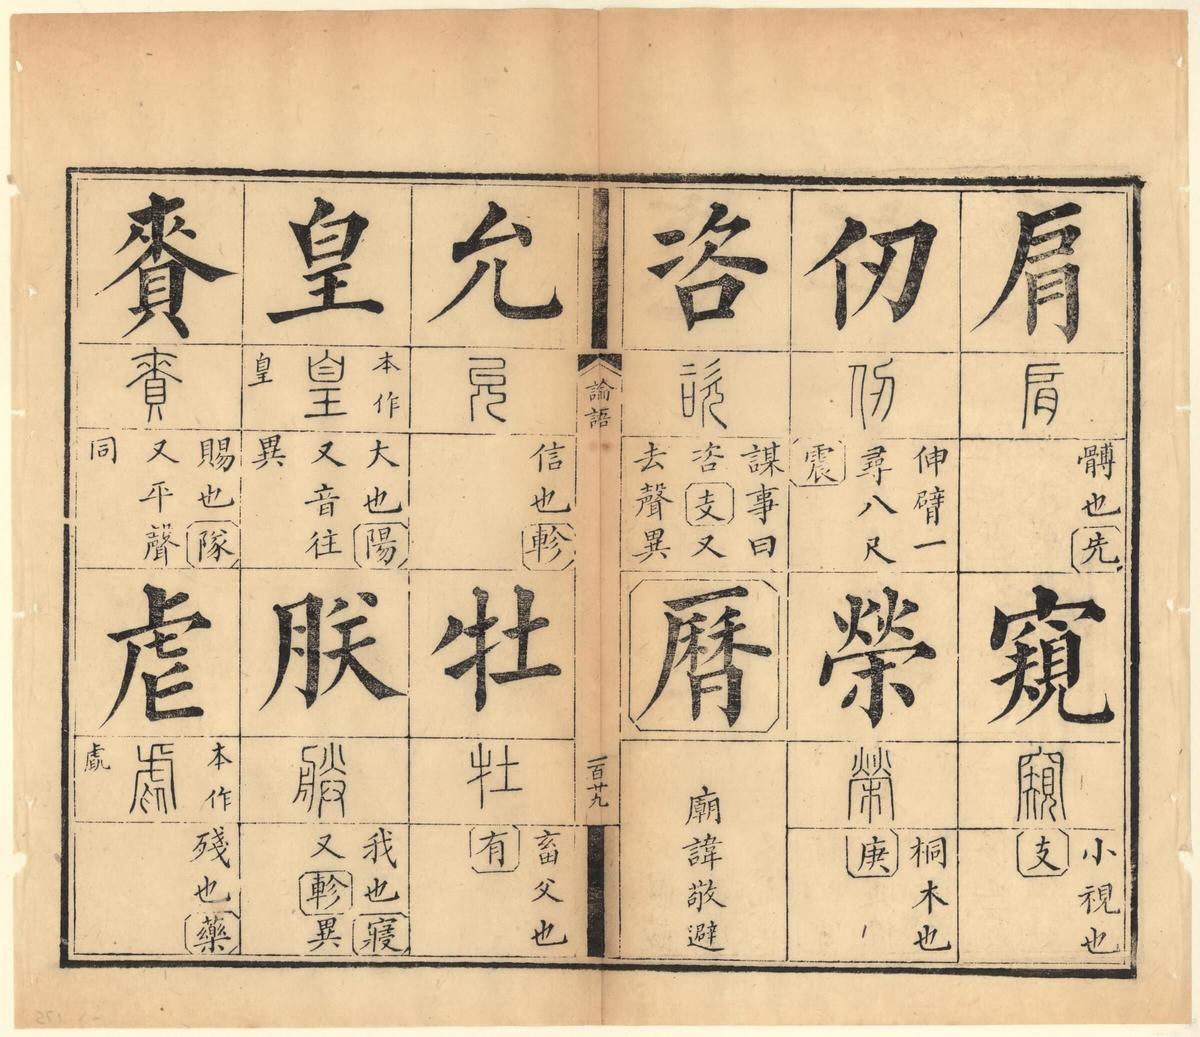 肩
肩
髆也先
窺
窺
小視也
支
仞
仞
伸臂一
尋八尺
震
榮
榮
桐木也
庚
咨
咨
謀事曰
咨支又
去聲異
曆
廟諱敬避
論語
一百廿九
允
允
信也軫
牡
牡
畜父也
有
皇
本作
皇
皇
大也陽
又音往
異
朕
朕
我也寢
又軫異
賚
賚
賜也隊
又平聲
同
虐
本作
虐
虐
殘也藥